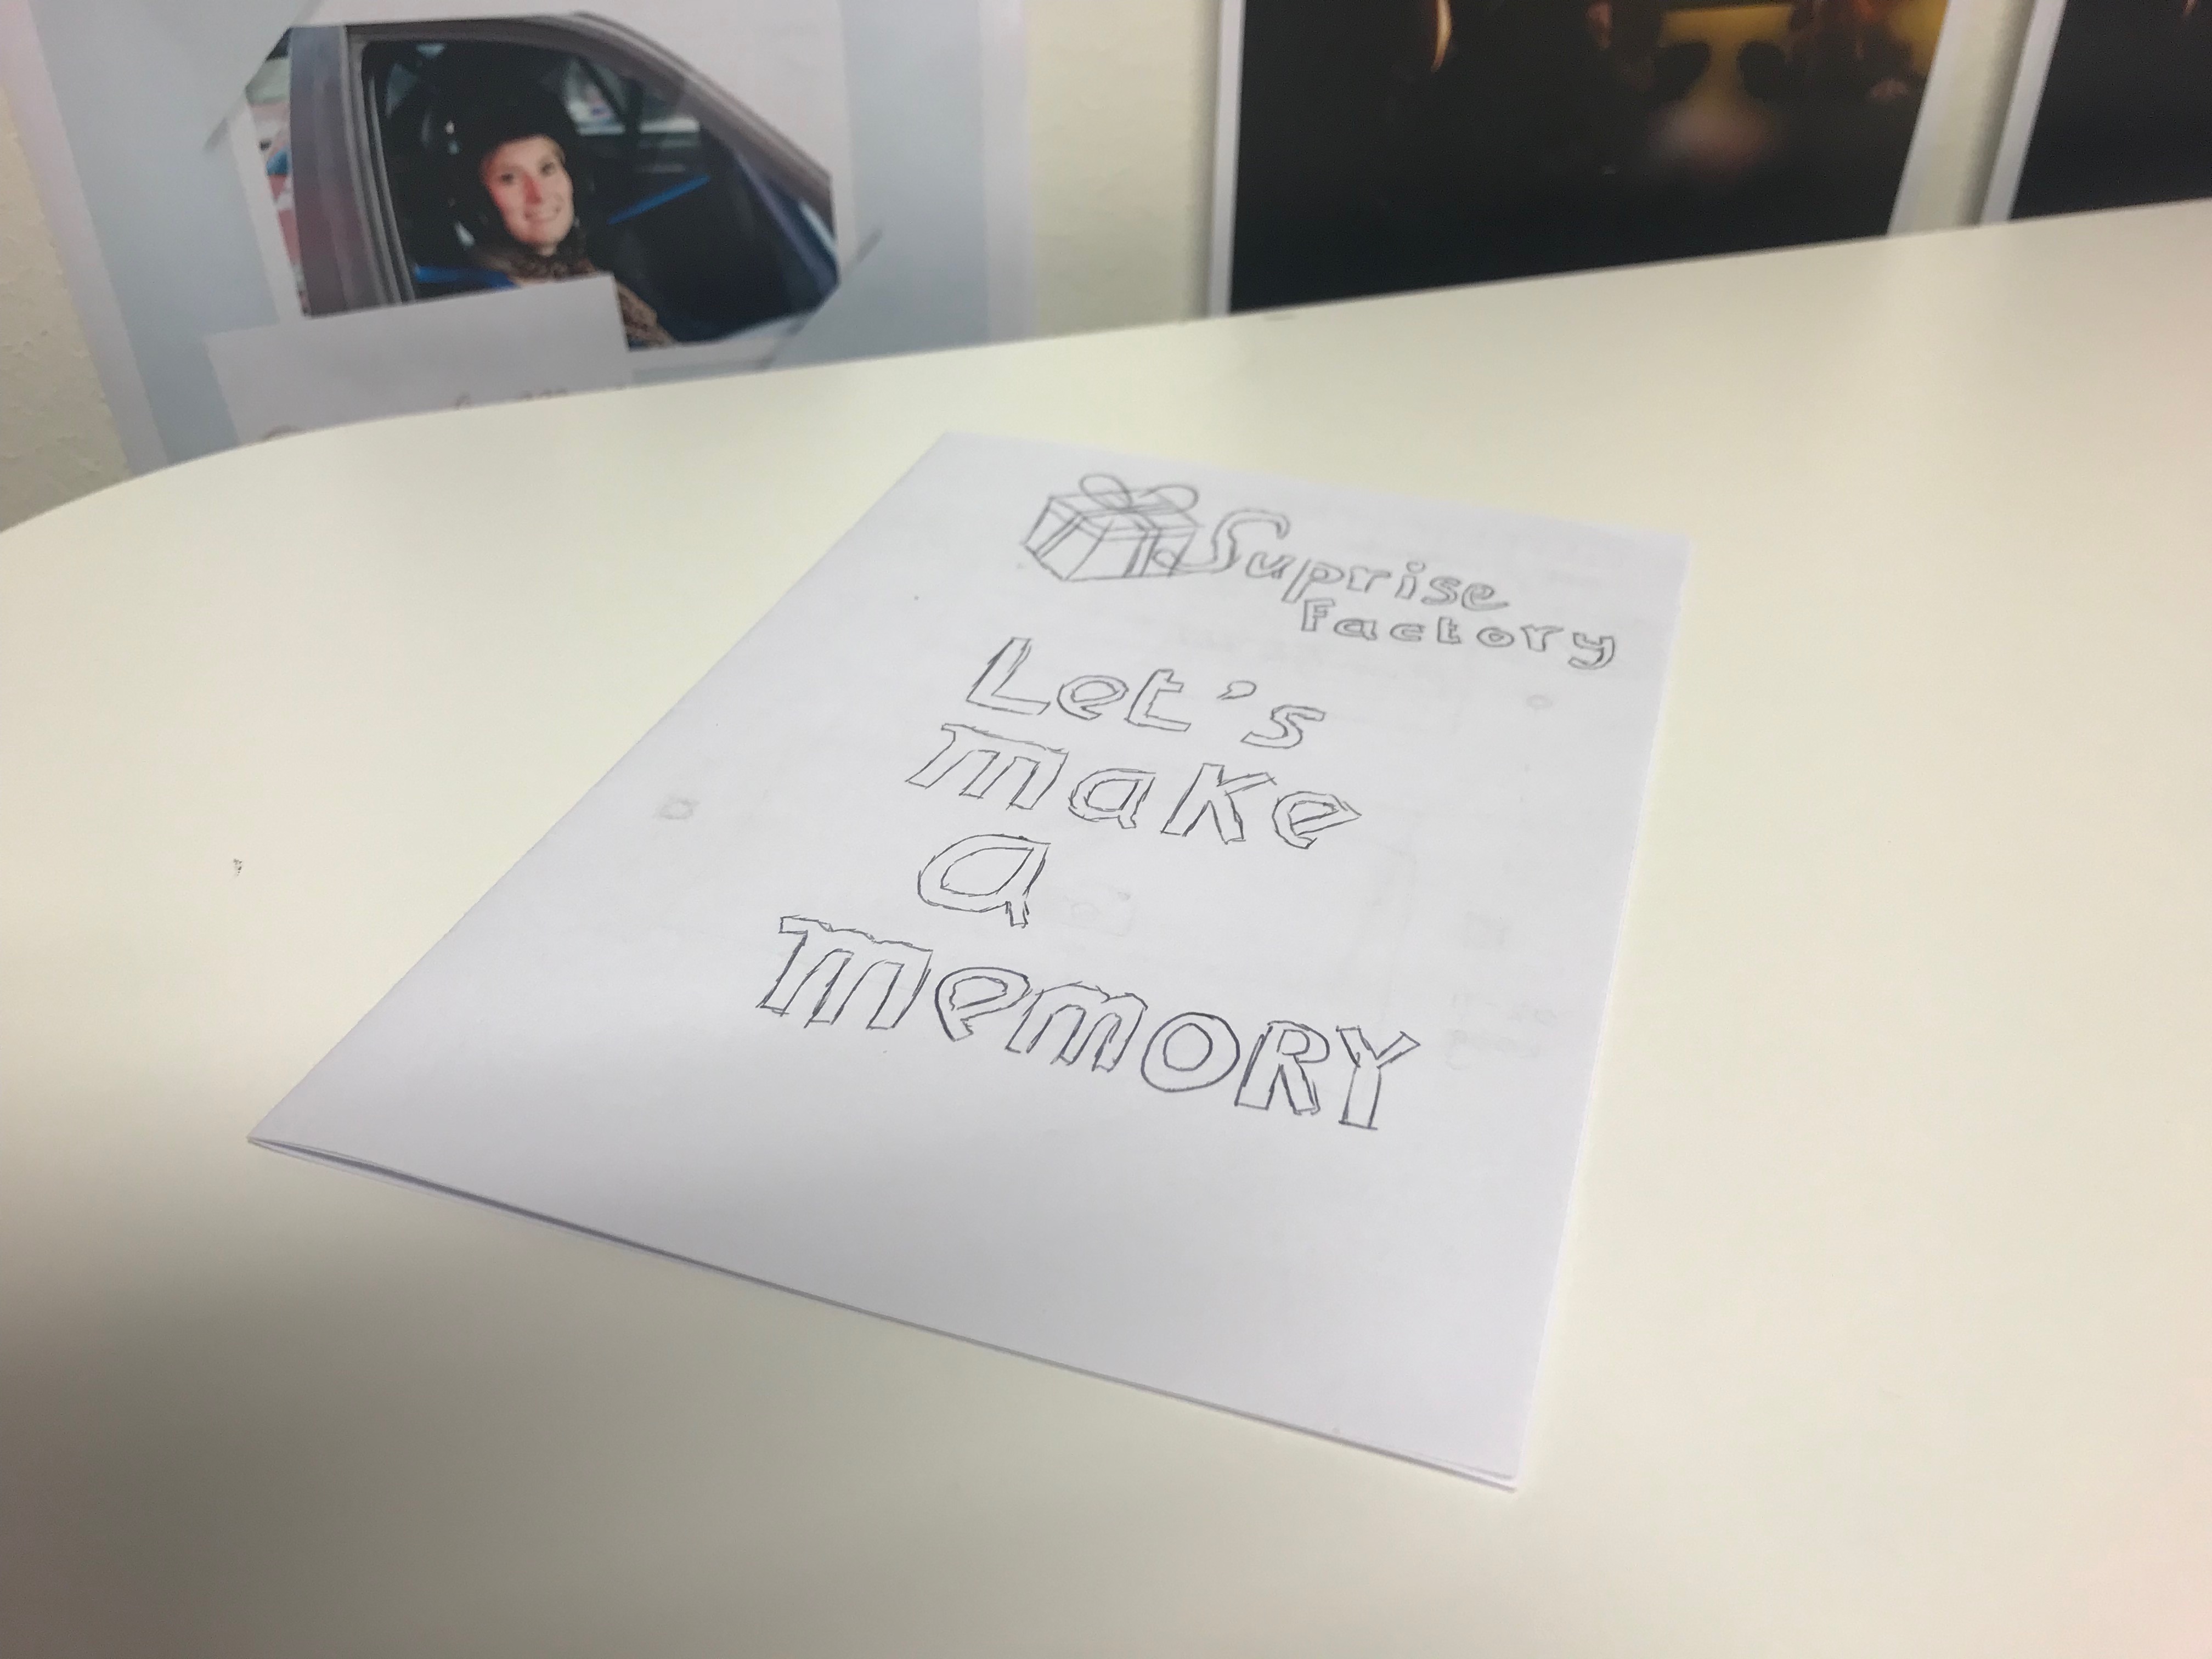 Suprise
Factory
Let's
make
a
memORY